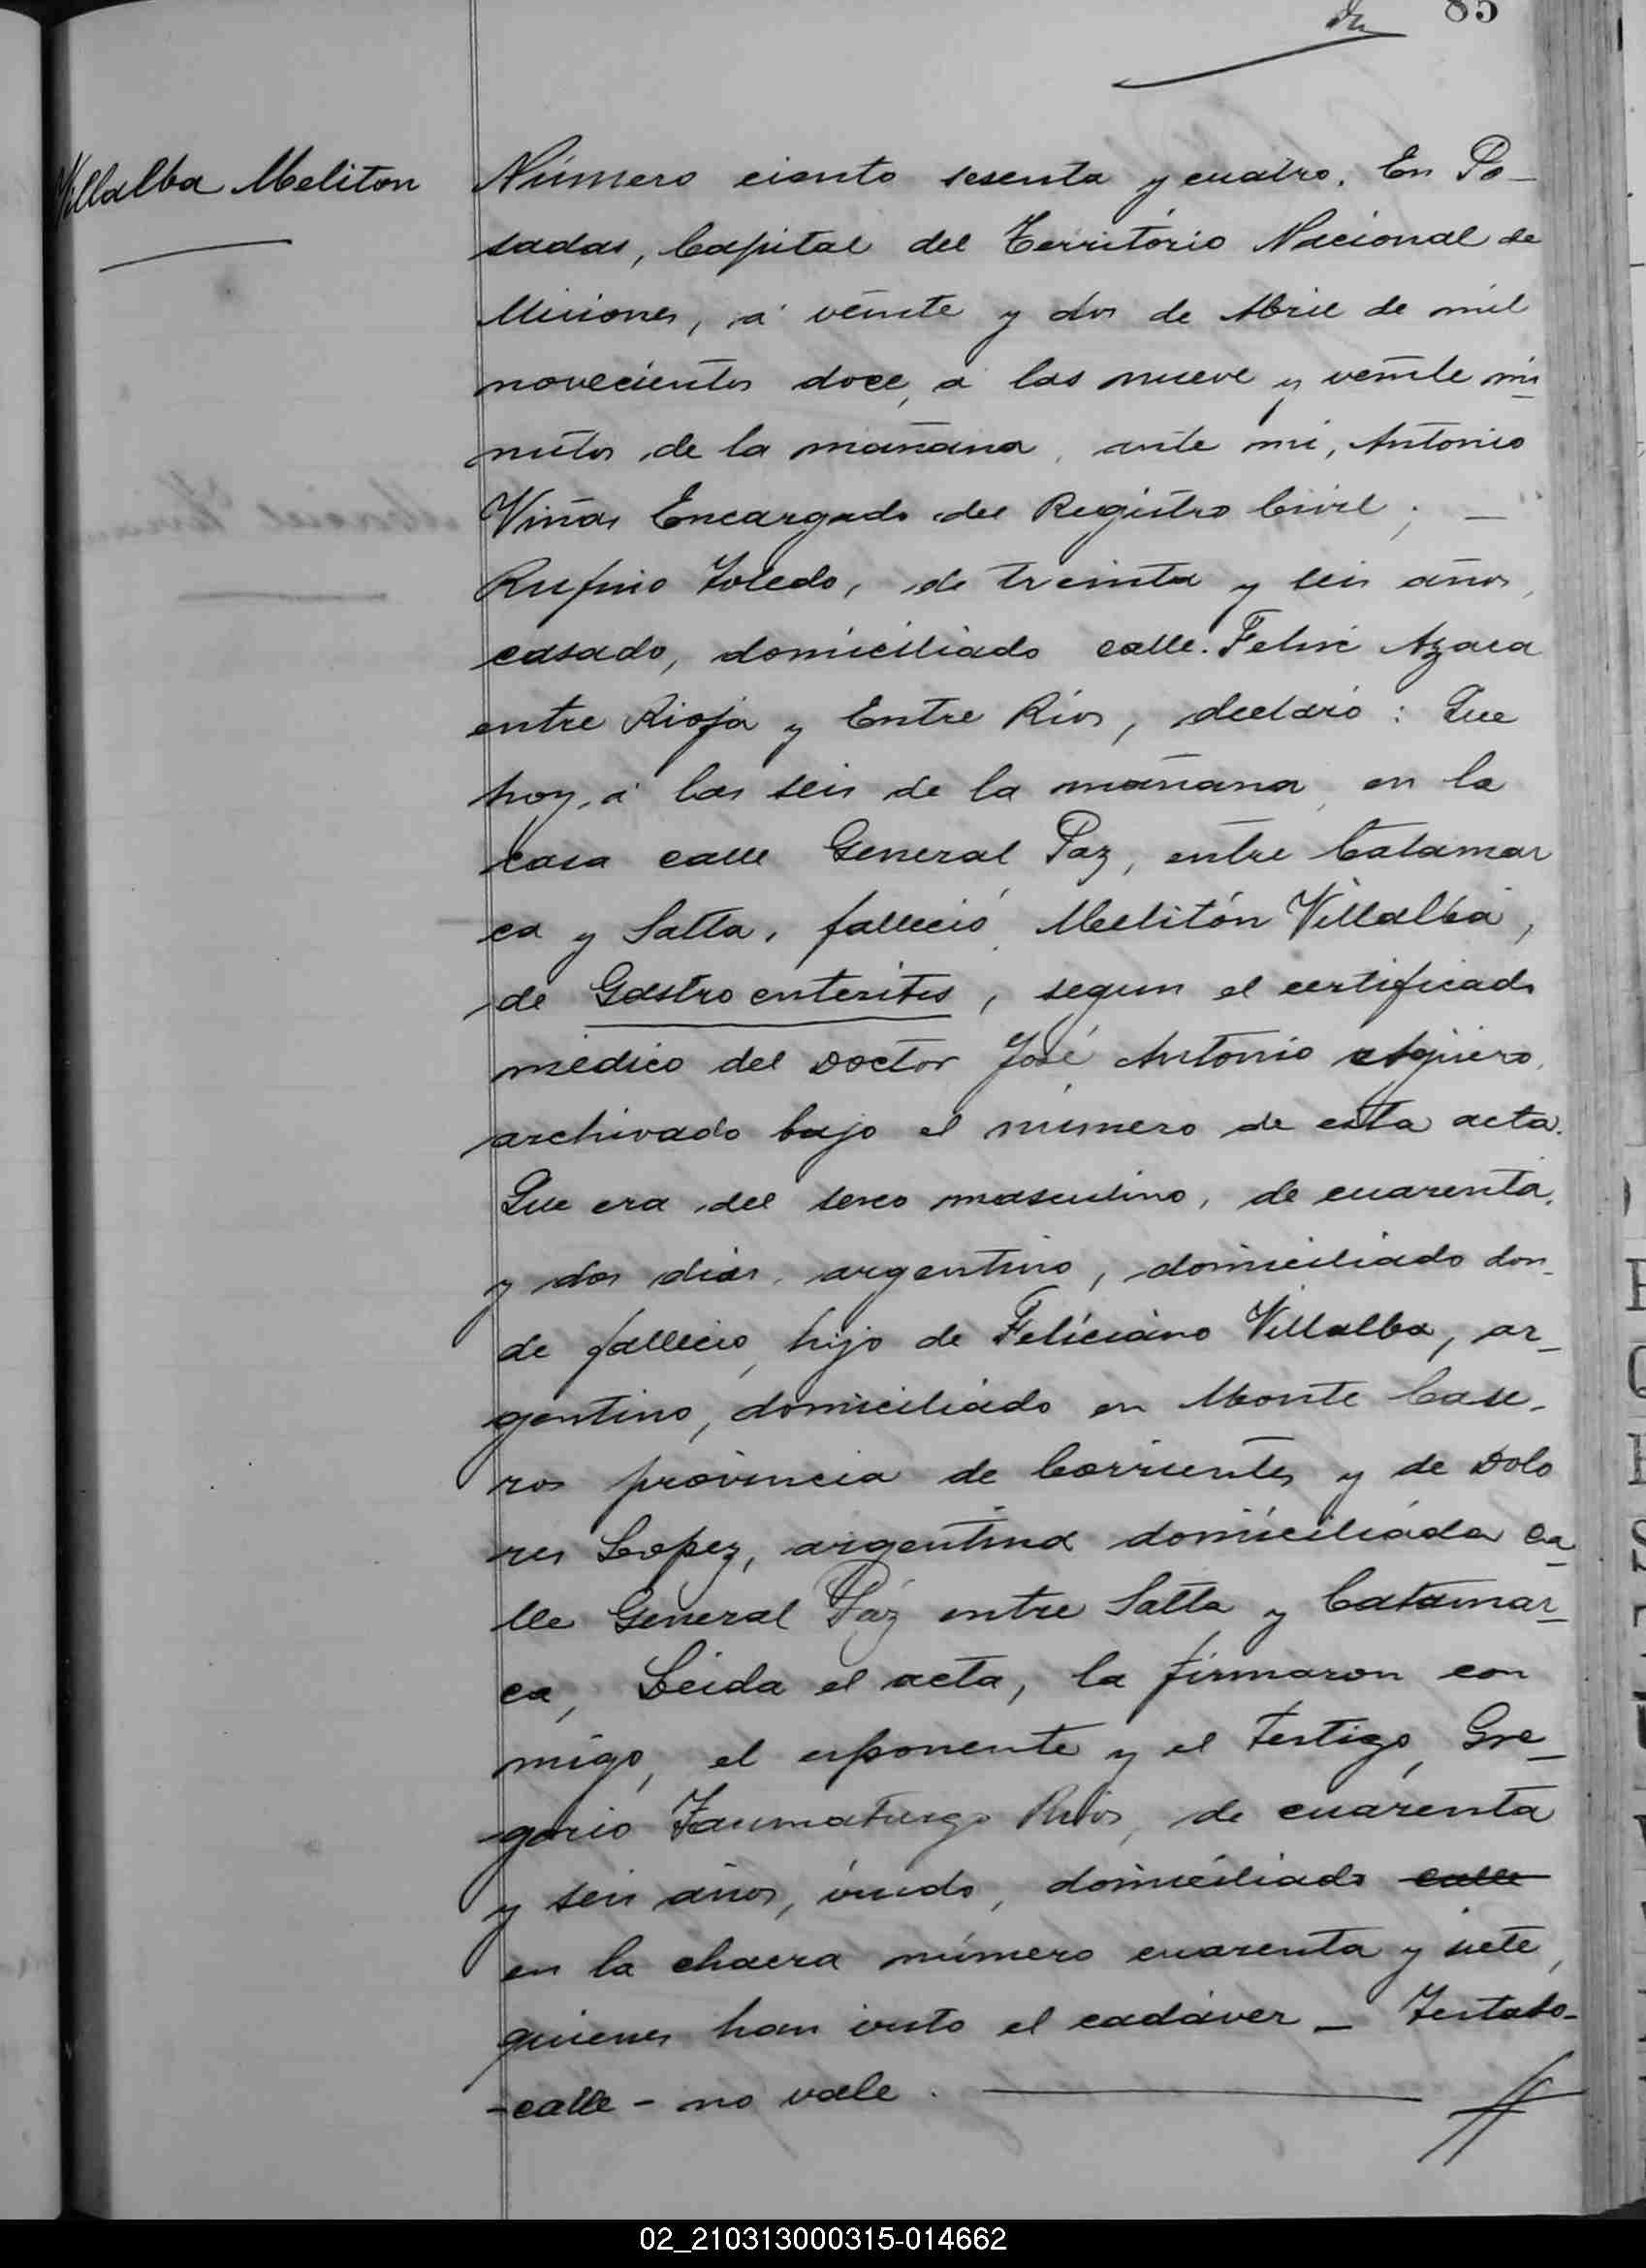 85
Villalba Meliton
Número ciento sesenta y cuatro. En Po-
sadas, Capital del Território Nacional de
Misiones, á veinte y dos de Abril de mil
novecientos doce, á las nueve y veinte mi-
nutos de la mañana, ante mi, Antonio
Viñas Encargado del Registro Civil; —
Rufino Toledo, de treinta y seis años,
casado, domiciliado calle Felix Azara
entre Rioja y Entre Rios, declaró: Que
hoy, á las seis de la mañana, en la
casa calle General Paz, entre Catamar
ca y Salta, falleció Melitón Villalba,
de Gastro enteritis, segun el certificado
médico del Doctor José Antonio Agüero,
archivado bajo el número de esta acta.
Que era del sexo masculino, de cuarenta
y dos dias, argentino, domiciliado don-
de falleció, hijo de Feliciano Villalba, ar-
gentino, domiciliado en Monte Case-
ros provincia de Corrientes y de Dolo
res Lopez, argentina domiciliada ca-
lle General Paz entre Salta y Catamar-
ca, Leida el acta, la firmaron con
migo, el exponente y el testigo, Gre-
gorio Taumaturgo Rios, de cuarenta
y seis años, viudo, domiciliado calle
en la chacra número cuarenta y siete,
quienes han visto el cadáver — Testado-
-calle- no vale.
02_210313000315-014662